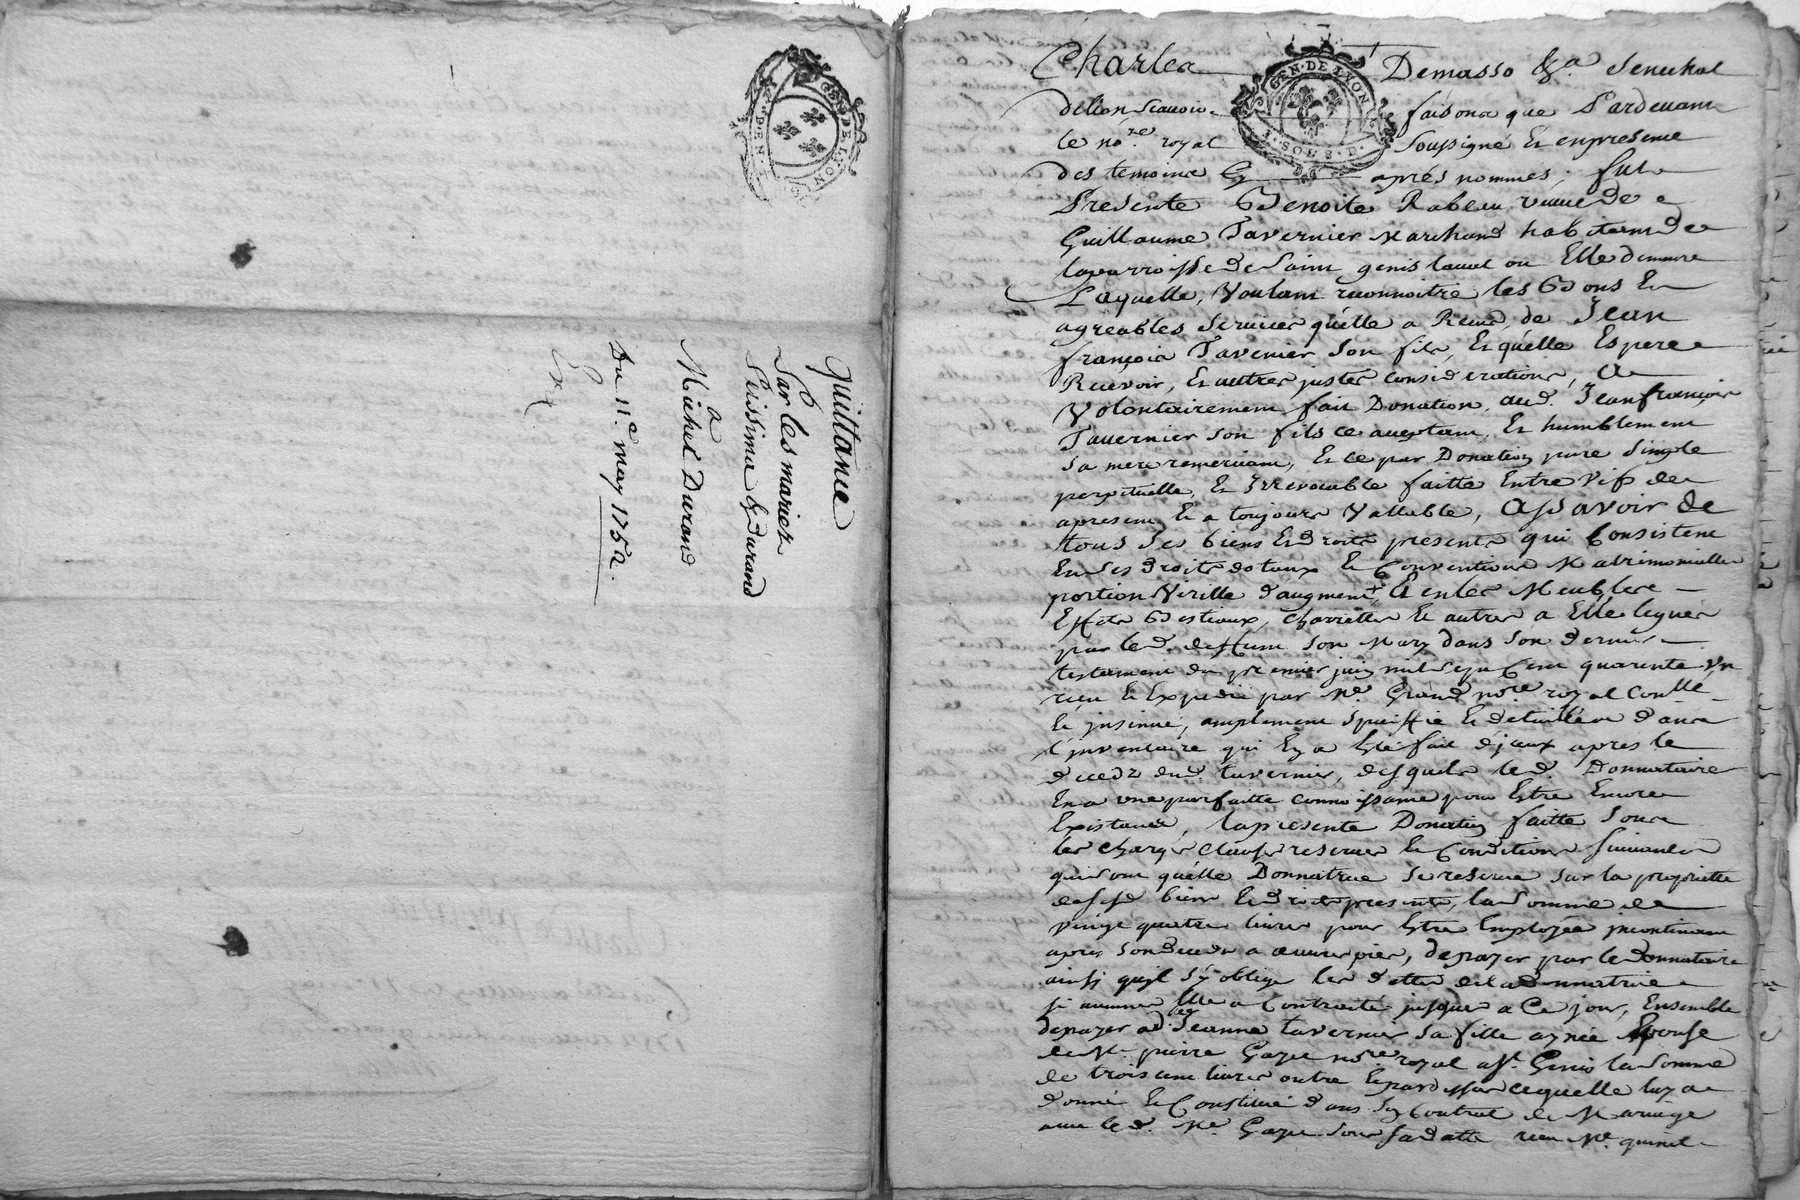 GEN·DE·LYON
quittance
Par les mariez
Peissima & durand
a
Michel Durand
Du 11.e may 1752.
Charles Demasso &a. Senechal
GEN·DE·LYON
SOLS
delion scavoir faisons que Pardevant
le no.re royal soussigné Et en presence
des temoins Cy après nommés, fut
Presente Benoite Rabeau veuve de
Guillaume Tavernier Marchand habitant de
la parroisse de Saint genis laval ou Elle demeure
Laquelle, Voulant reconnoitre les Bons Et
agreables Services qu'elle a Receus de Jean
françois Tavernier Son fils, Et qu'elle Espere
Recevoir, Et autres justes Considerations, a
Volontairement fait Donation, aud. Jean françois
Tavernier Son fils ce acceptant, Et humblement
Sa mere remerciant, Et ce par Donation pure Simple
perpetuelle, Et Irrevocable faitte Entre Vifs de
apresent Et a toujours Vallable, Assavoir de
tous Ses biens Et droits presents qui Consistent
En Ses droits dotaux Et Conventions Matrimonialles
portion Virille d'augment, Et en les Meubles
Effets Bestiaux, charrettes Et autres a Elle legués
par led. deffunt Son Mary dans Son dernier
testament du premier juin mil Sept Cent quarente un
receu Et Expedié par Me. Grand no.re royal Conllé
Et insinué, amplement Speciffié Et detaillés dans
l'inventaire qui En a Eté fait dejaux apres le
decedz dud. tavernier, desquels led. Donnataire
En a une parfaitte connoissance pour Estre Encore
Existance, la presente Donation faitte Sous
les charges clauses reserves Et Conditions Suivantes
qui Sont qu'elle Donnatrice Se reserve Sur la proprietté
desd. biens Et droits presents, la Somme de
vingt quatre livres pour Estre Employée incontinant
apres Son decedz a œuvres pies, de payer par le donnataire
ainsi qu'il S'y oblige les dettes de la donnatrice
Si aucunes Elle a Contracté jusques a Ce jour, Ensemble
de payer a Jeanne tavernier Sa fille aynée Epouse
de Me. pierre Gayet no.re royal a St. Genis la Somme
de trois cent livres outre Et pardessus ce quelle luy a
donné Et Constitué dans Son Contrat de Mariage
avec led. Me. Gayet Sous Sa datte receu Me.